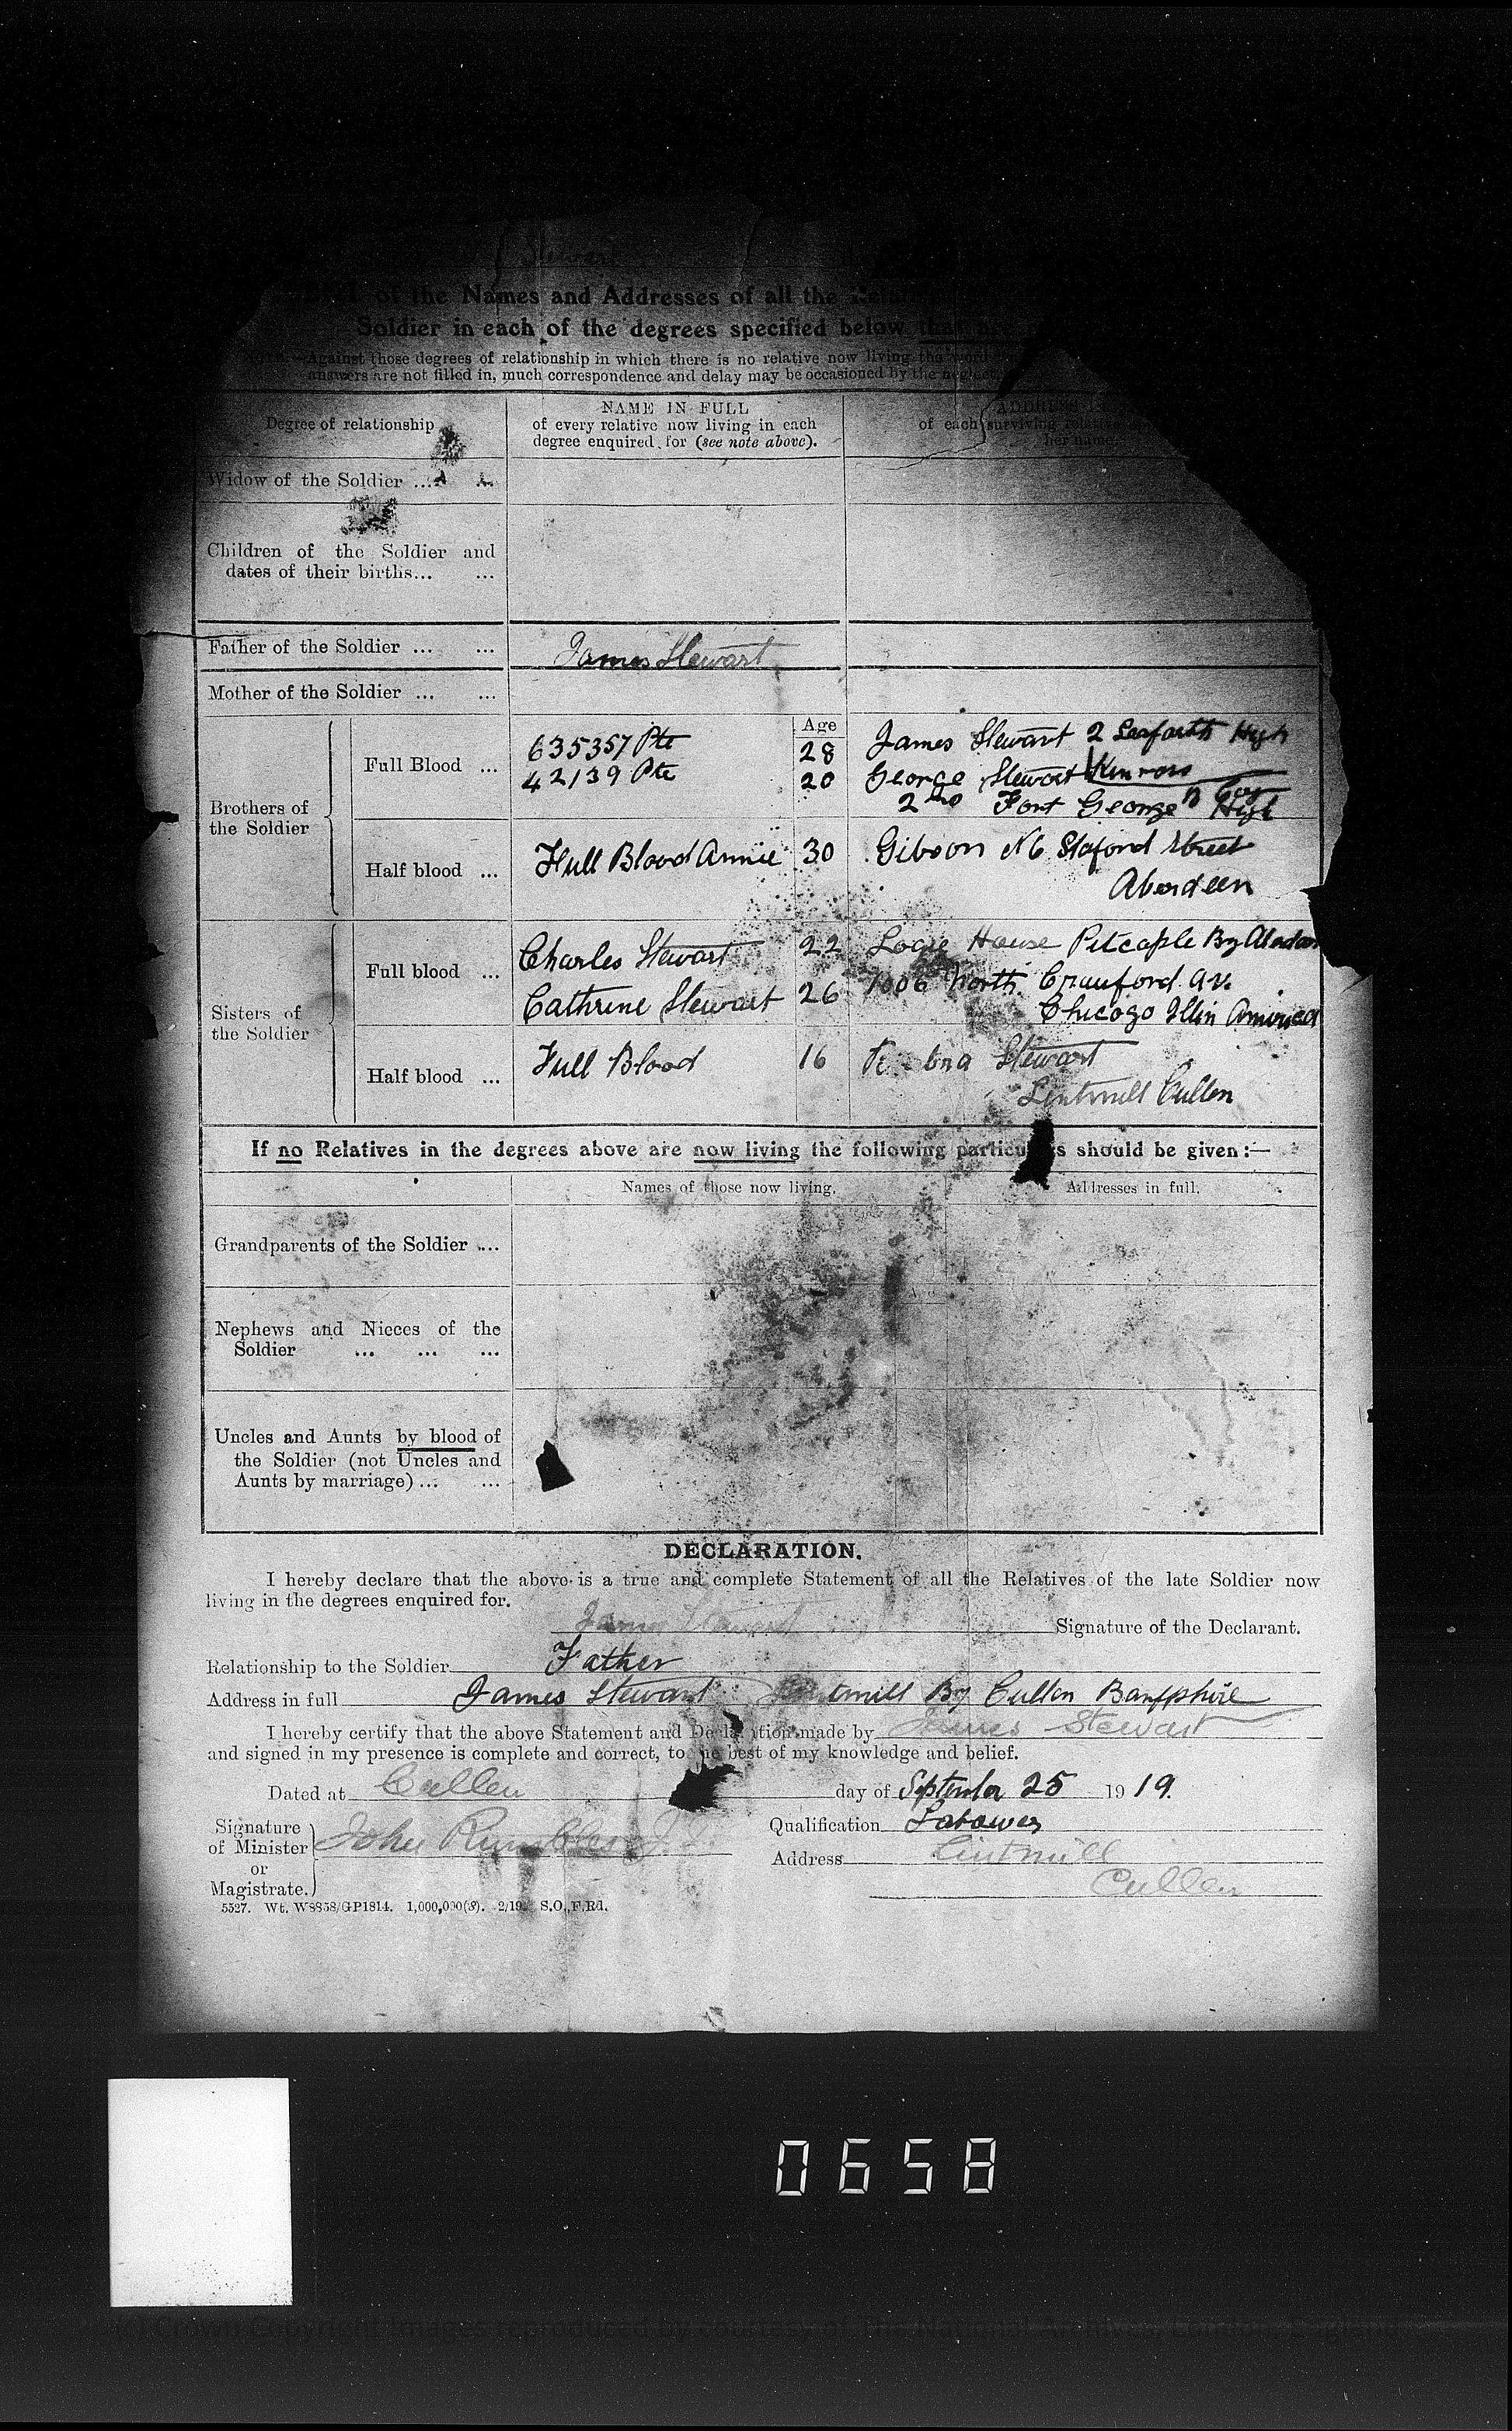 Stewart
of the Names and Addresses of all the
Soldier in each of the degrees specified below that are
Against those degrees of relationship in which there is no relative now living the word
answers are not filled in, much correspondence and delay may be occasioned by the neglect.
Degree of relationship
NAME IN FULL
of every relative now living in each
degree enquired for (see note above).
ADDRESS
of each surviving relative
her name.
Widow of the Soldier ...
Children of the Soldier and
dates of their births... ...
Father of the Soldier ... ...
James Stewart
Mother of the Soldier ... ...
Brothers of
the Soldier
Full Blood ...
Age
635357 Pte 28 James Stewart 2 Seaforth High
42139 Pte 20 George Stewart Kinross
2nd Fort George Coy High
Half blood ...
Full Blood Annie 30 Gibson No 6 Staford Street
Aberdeen
Sisters of
the Soldier
Full blood ...
Charles Stewart 22 Logie House Pitcaple By
Cathrine Stewart 26 1006 North Crauford Av.
Chicago Illin America
Half blood ...
Full Blood 16 Stewart
Lintmill Cullen
If no Relatives in the degrees above are now living the following particu s should be given:—
Names of those now living.
Addresses in full.
Grandparents of the Soldier ...
Nephews and Nieces of the
Soldier ... ... ...
Uncles and Aunts by blood of
the Soldier (not Uncles and
Aunts by marriage)... ...
DECLARATION.
I hereby declare that the above is a true and complete Statement of all the Relatives of the late Soldier now
living in the degrees enquired for.
James Stewart Signature of the Declarant.
Relationship to the Soldier Father
Address in full James Stewart Lintmill By Cullen Banffshire
I hereby certify that the above Statement and Declaration made by James Stewart
and signed in my presence is complete and correct, to the best of my knowledge and belief.
Dated at Cullen day of September 25 1919.
Signature
of Minister
or
Magistrate.
John Rumbles J.P.
Qualification Labourer
Address Lintmill
Cullen
5527. Wt. W8858/GP1814. 1,000,000(8). 2/19. S.O.,F.Rd.
0658
(c) Crown Copyright Images reproduced by courtesy of The National Archives, London, England